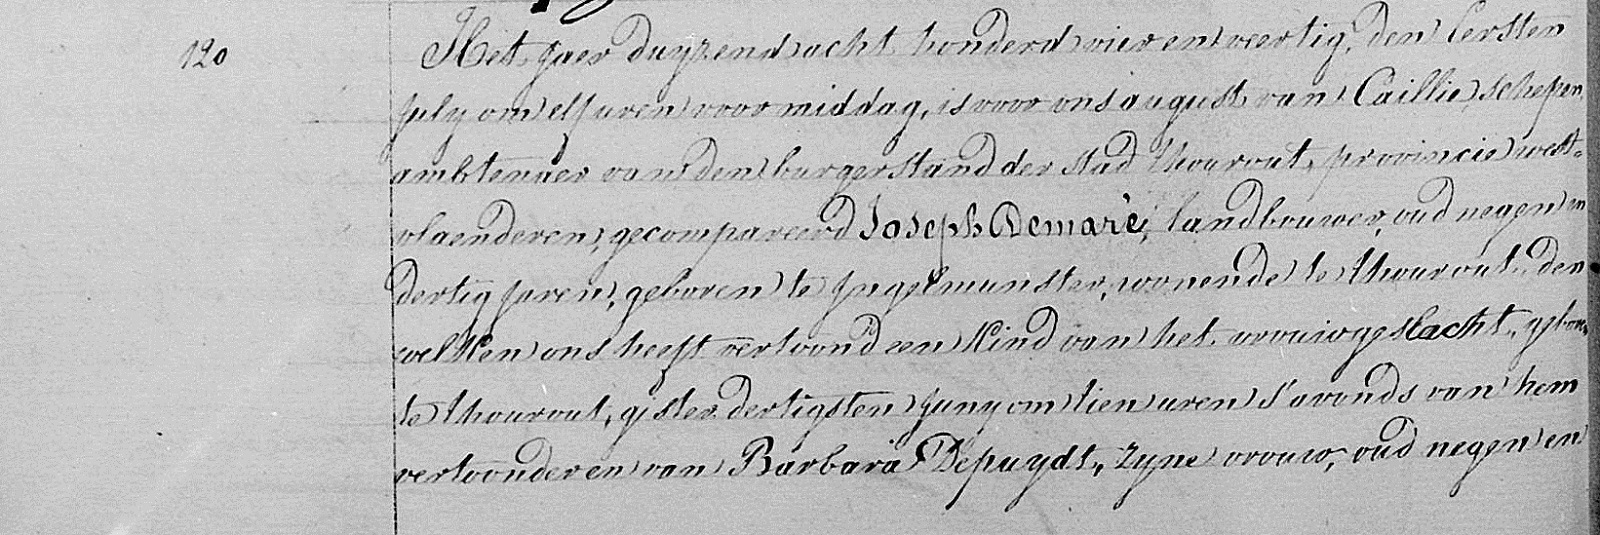 120
Het jaer duyzend acht honderd vier en veertig, den Eersten
july om elf uren voor middag, is voor ons august van Caillie, schepen,
ambtenaer van den burgerstand der stad thourout, provincie west-
vlaenderen, gecompareerd Joseph Demarée, landbouwer, oud negen en
dertig jaren, geboren te jngelmunster, wonende te thourout, den
welken ons heeft vertoond een Kind van het vrouwgeslacht, gebore,
te thourout, gister dertigsten juny om tien uren s'avonds van hem
vertoonder en van Barbara Depuydt, zyne vrouw, oud negen en